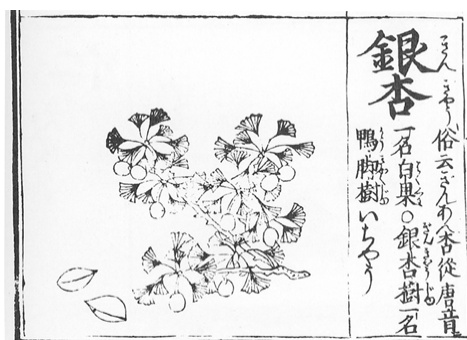 銀杏
ぎんきやう
俗云ぎんあん杏從唐音
一名白果○銀杏樹一名
鴨脚樹いちやう